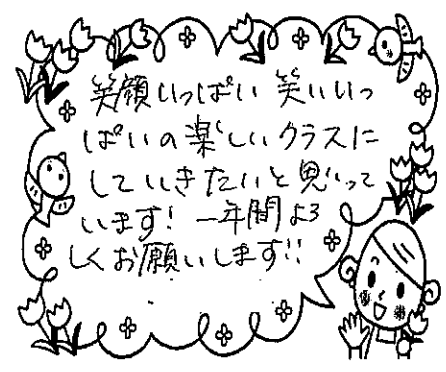 笑顔いっぱい 笑いいっ
ぱいの楽しいクラスに
していきたいと思いって
います! 一年間よろ
しくお願いします!!